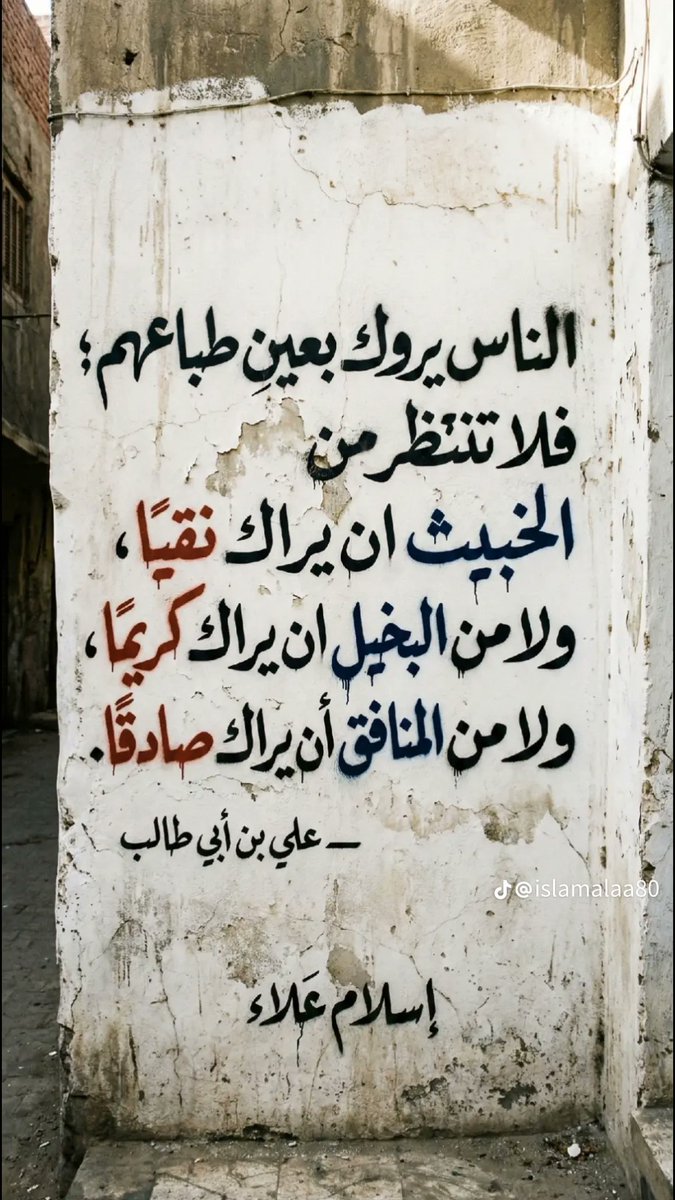 الناس يروك بعينِ طباعهم؛
فلا تنتظر من
الخبيث ان يراك نقيًا،
ولا من البخيل ان يراك كريمًا،
ولا من المنافق أن يراك صادقًا.
— علي بن أبي طالب
@islamalaa80
إسلام عَلاء